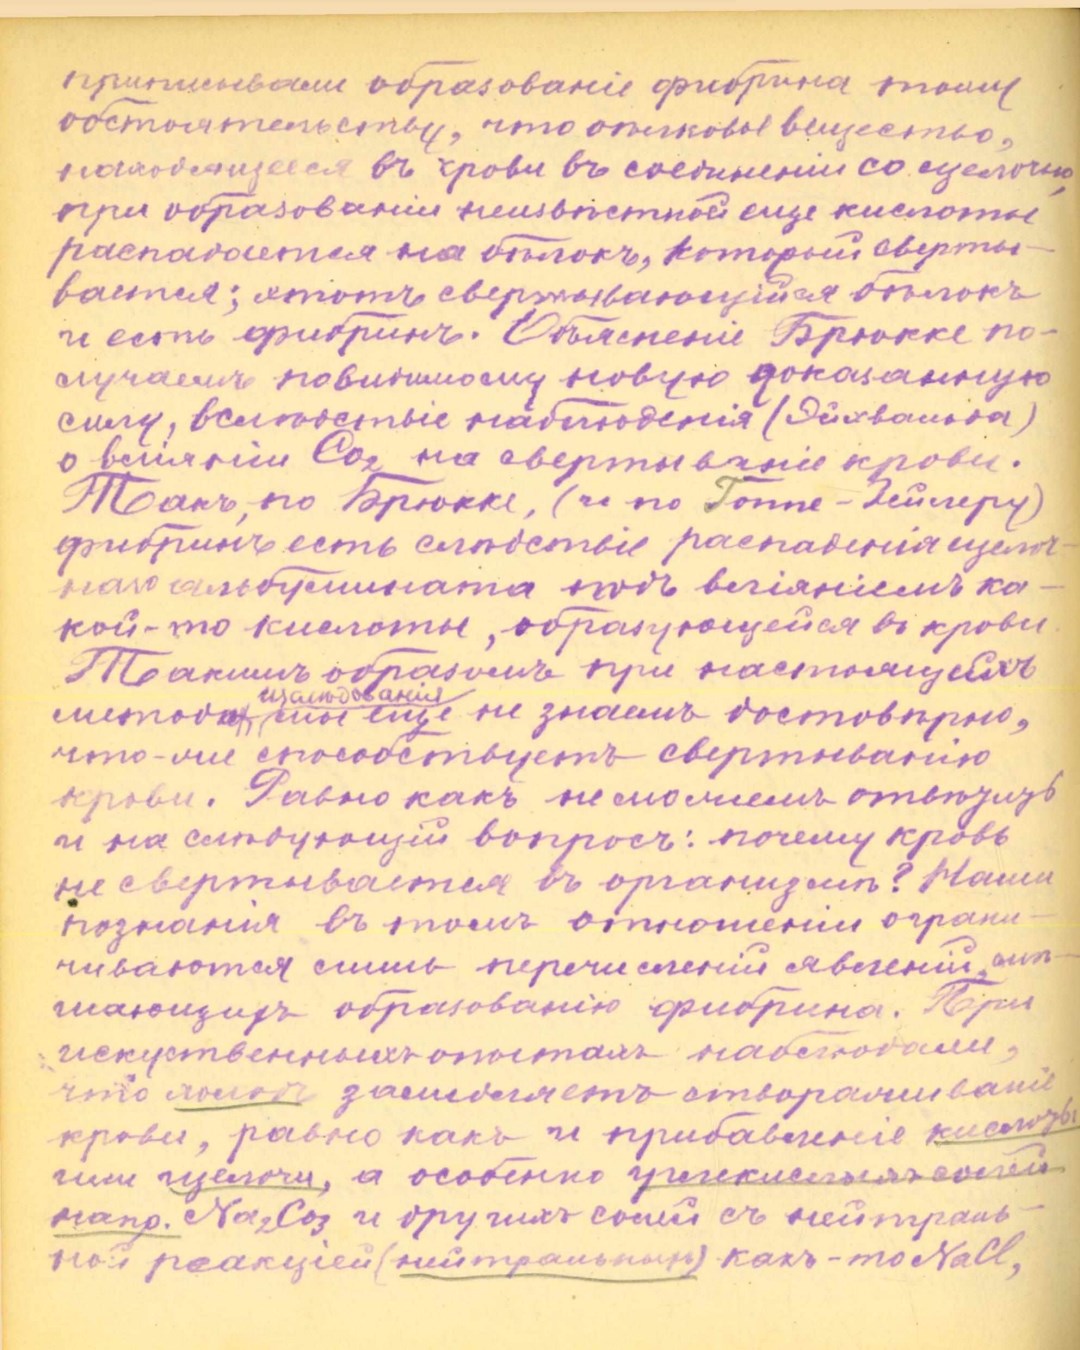 приписывали образованіе фибрина тому
обстоятельству, что бѣлковое вещество,
находящееся въ крови въ соединеніи со щелочью,
при образованіи неизвѣстной еще кислоты
распадается на бѣлокъ, который сверты-
вается; этотъ свертывающійся бѣлокъ
и есть фибринъ. Объясненіе Брюкке по-
лучаетъ повидимому новую доказанную
силу, вслѣдствіе наблюденія (Эйхвальда)
о вліяніи Co2 на свертываніе крови.
Такъ, по Брюкке, (и по Гоппе-Зейлеру)
фибринъ есть слѣдствіе распаденія щелоч-
наго альбумината подъ вліяніемъ ка-
кой-то кислоты, образующейся въ крови
Такимъ образомъ при настоящихъ
изслѣдованія
методахъ мы еще не знаемъ достовѣрно,
что-же способствуетъ свертыванію
крови. Равно какъ не можемъ отвѣтить
и на слѣдующій вопросъ: почему кровь
не свертывается въ организмѣ? Наши
познанія въ этомъ отношеніи ограни-
чиваются лишь перечисленій явленій, мѣ-
шающихъ образованію фибрина. При
искуственныхъ опытахъ наблюдали,
что холодъ замедляетъ створаживаніе
крови, равно какъ и прибавленіе кислоты
или щелочи, а особенно углекислыхъ солей
напр. Na2Co3 и другихъ солей съ нейтраль-
ной реакціей (нейтральныхъ) какъ-то NaCl,